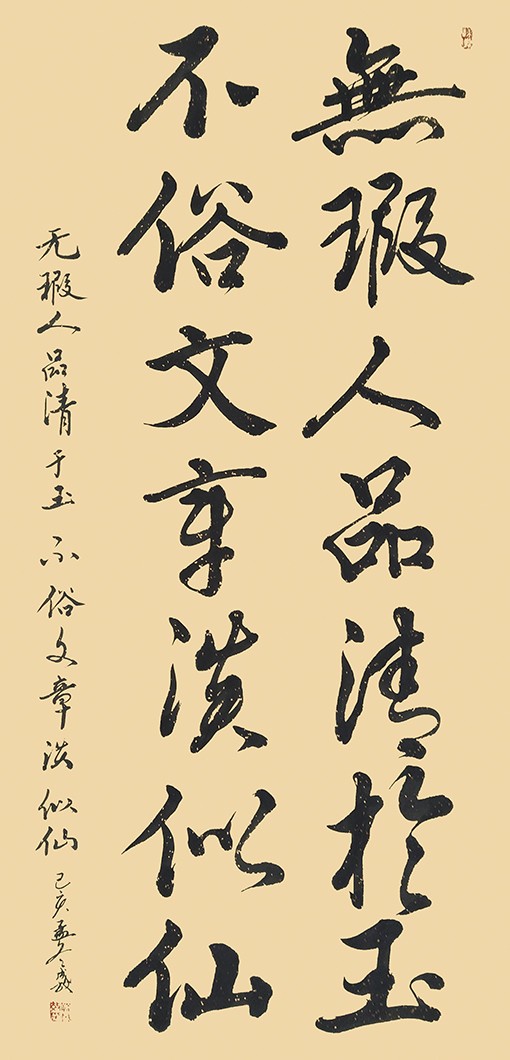 無瑕人品清於玉
不俗文章淡似仙
无瑕人品清于玉 不俗文章淡似仙 己亥孟冬